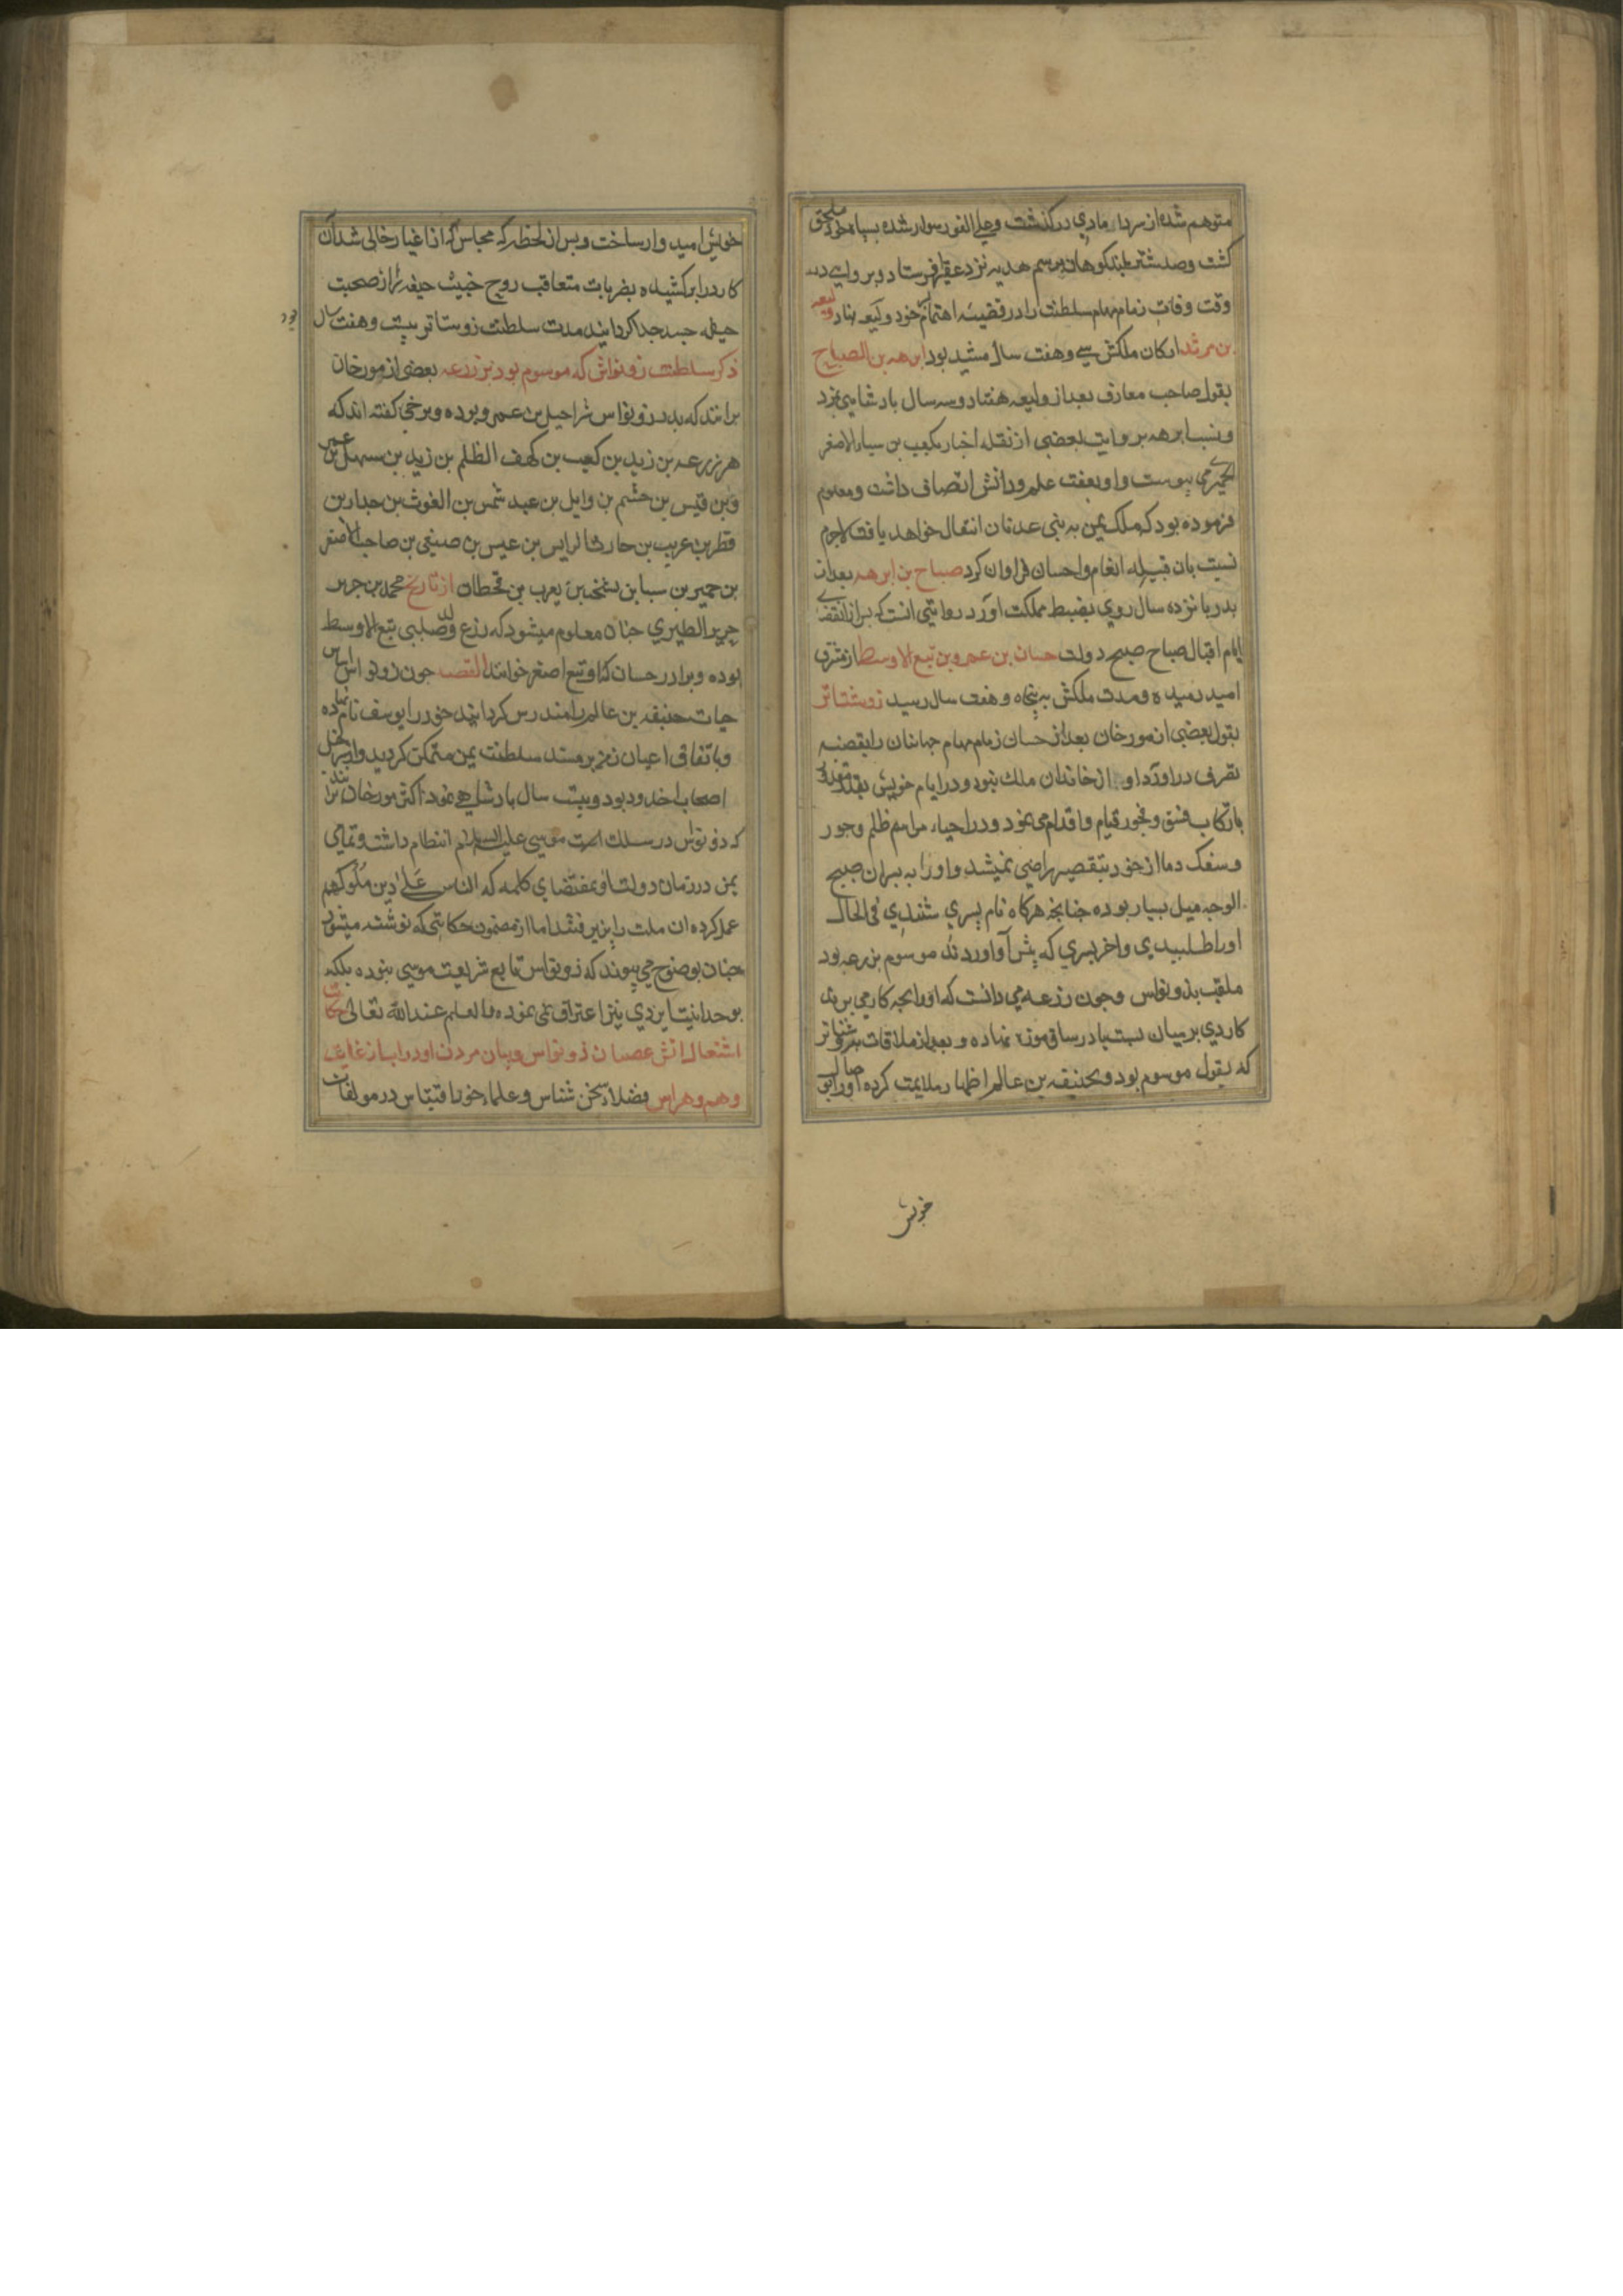 متوهم شده از سردا مادی درگذشت و علی الفور سوار شده بسپاه خود ملحق
کشت وصد شتر بلندکوهان برسم هدیه نزد فرستاد و بروایتی در
وقت وفات زمام مهام سلطنت را در قبضه اهتمام خود ولیعه نهاد ولیعه
بن مرثد ارکان ملکش سی وهفت سال مشید بود ابرهه بن الصباح
بقول صاحب معارف بعد از ولیعه هفتاد وسه سال بادشاهی کرد
ونسب ابرهه بروایت بعضی از نقله اخبار بکعب بن الاصغر
الحمیری می پیوست واو بعفت علم ودانش اتصاف داشت ومعلوم
فرموده بود که ملک یمن به بنی عدنان انتقال خواهد یافت لاجرم
نسبت بان قبیله انعام واحسان فراوان کرد صباح بن ابرهه بعد از
بدر بانزده سال روی بضبط مملکت اورد روایتی انست که بس از انقضای
ایام اقبال صباح صبح دولت حسان بن عمرو بن تبع الاوسط از مشرق
امید دمیده ومدت ملکش به پنجاه وهفت سال رسید ذوشناتر
بقول بعضی از مورخان بعد از حسان زمام مهام جهانیان را بقبضه
تصرف دراورد او از خاندان ملک نبود ودر ایام خویش بقدر مقدور
بارتکاب فسق وفجور قیام واقدام می نمود ودر احیاء مراسم ظلم وجور
وسفک دما از خود بتقصیر راضی نمیشد واورا به بسران صبیح
الوجه میل بسیار بوده جنانجه هرکاه نام پسری شنیدی فی الحال
اورا طلبیدی واخر بسری که پیش او اوردند موسوم بزرعه بود
ملقب بذونواس وجون زرعه می دانست که اورا بجه کار می برند
کاردی بر میان بست یا در ساق موزه نهاده وبعد از ملاقات بذوشناتر
که بقولی موسوم بود بحنیفه بن عالم اظهار ملایمت کرده اورا بوصال
خویش
خویش امیدوار ساخت وبس از لحظه که مجلس که از اغیار خالی شد آن
کارد را برکشیده بضربات متعاقب روح خبیث حیفه را از صحبت
جیفه جسد جدا کردانید مدت سلطنت ذوشناتر بیست وهفت سال بود
ذکر سلطنت ذونواس که موسوم بود بزرعه بعضی از مورخان
برانند که بدر ذونواس شراحیل بن عمرو بوده وبرخی کفته اند که
هو زرعه بن زید بن کعب بن کهف الظلم بن زید بن سهل بن عمر
وبن قیس بن جشم بن وایل بن عبد شمس بن الغوث بن جدار بن
قطر بن عریب بن حارث الرایس بن عیس بن صیفی بن صاحب الاصغر
بن حمیر بن سبا بن یشجب بن یعرب بن قحطان از تاریخ محمد بن جریر
جریر الطبری جنان معلوم میشود که زرعه ولد صلبی تبع الاوسط
بوده وبرادر حسان که او تبع اصغر خوانند القصه جون ذونواس اساس
حیات حنیفه بن عالم را مندرس کردانید خود را یوسف نام نهاده
وباتفاق اعیان یمن بر مسند سلطنت یمن متمکن کردید واو
اصحاب اخدود بود وبیست سال بادشاهی نمود اکثر مورخان برانند
که ذونواس در سلک امت موسی علیه السلام انتظام داشت وتمامی
یمن در زمان دولت او بمقتضای کلمه که الناس علی دین ملوکهم
عمل کرده ان ملت را بذیرفتند اما از مضمون حکایتی که نوشته میشود
جنان بوضوح می پیوندد که ذونواس تابع شریعت موسی نبوده بلکه
بوحدانیت ایزدی نیز اعتراف نمی نموده والعلم عند الله تعالی حکایت
اشتعال اتش عصیان ذونواس وبیان مردن او در اب از غایت
وهم وهراس فضلاء سخن شناس وعلماء خورد اقتباس در مولفات